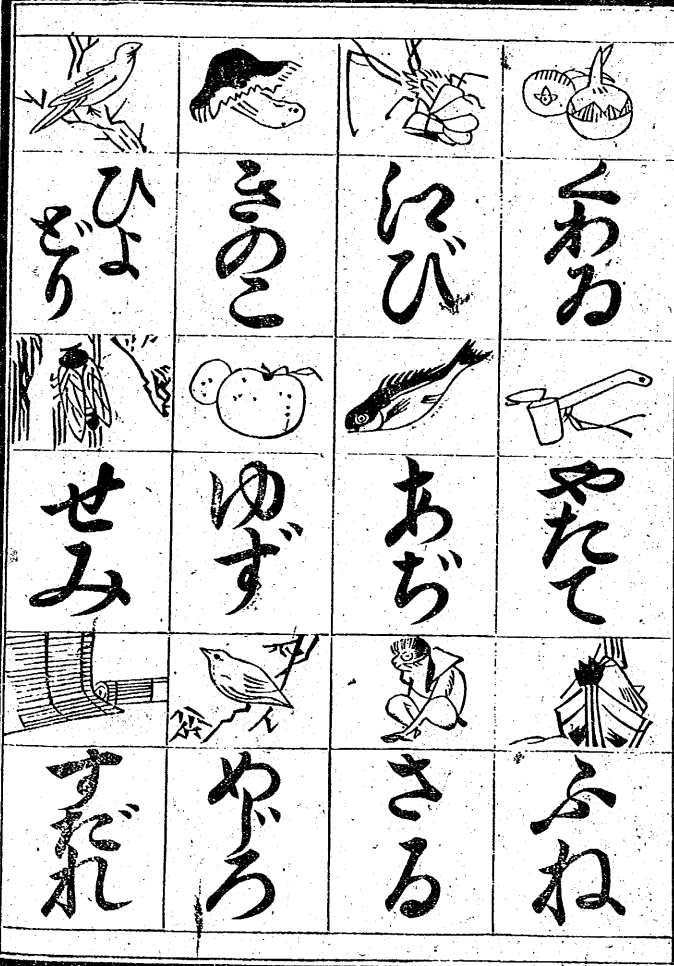 くわゐ
江び
きのこ
ひよ
どり
やたて
あぢ
ゆず
せみ
ふね
さる
めじろ
すだれ